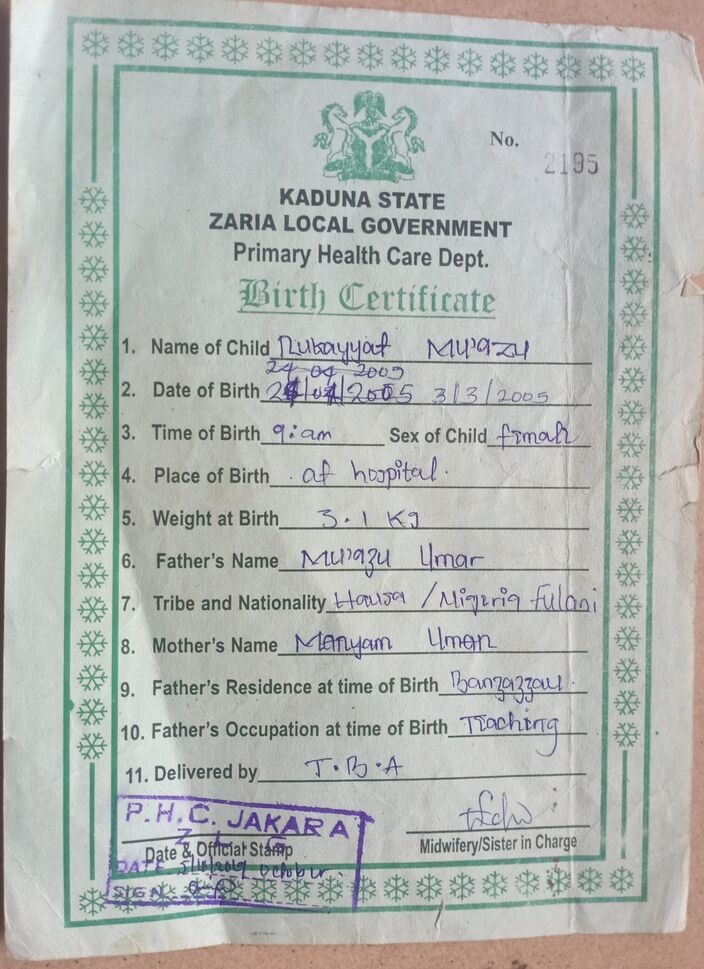 No. 2195
KADUNA STATE
ZARIA LOCAL GOVERNMENT
Primary Health Care Dept.
Birth Certificate
1. Name of Child Rukayyat Mu'azu
24 04 2005
2. Date of Birth 24/04/2005 3/3/2005
3. Time of Birth 9:am Sex of Child female
4. Place of Birth at hospital.
5. Weight at Birth 3.1 Kg
6. Father's Name Mu'azu Umar
7. Tribe and Nationality Hausa / Nigeria Fulani
8. Mother's Name Maryam Umar
9. Father's Residence at time of Birth Banzazzau.
10. Father's Occupation at time of Birth Teaching
11. Delivered by T.B.A
P.H.C. JAKARA
Z L G
Date & Official Stamp
Midwifery/Sister in Charge
DATE 5/10/2019 October.
SIGN